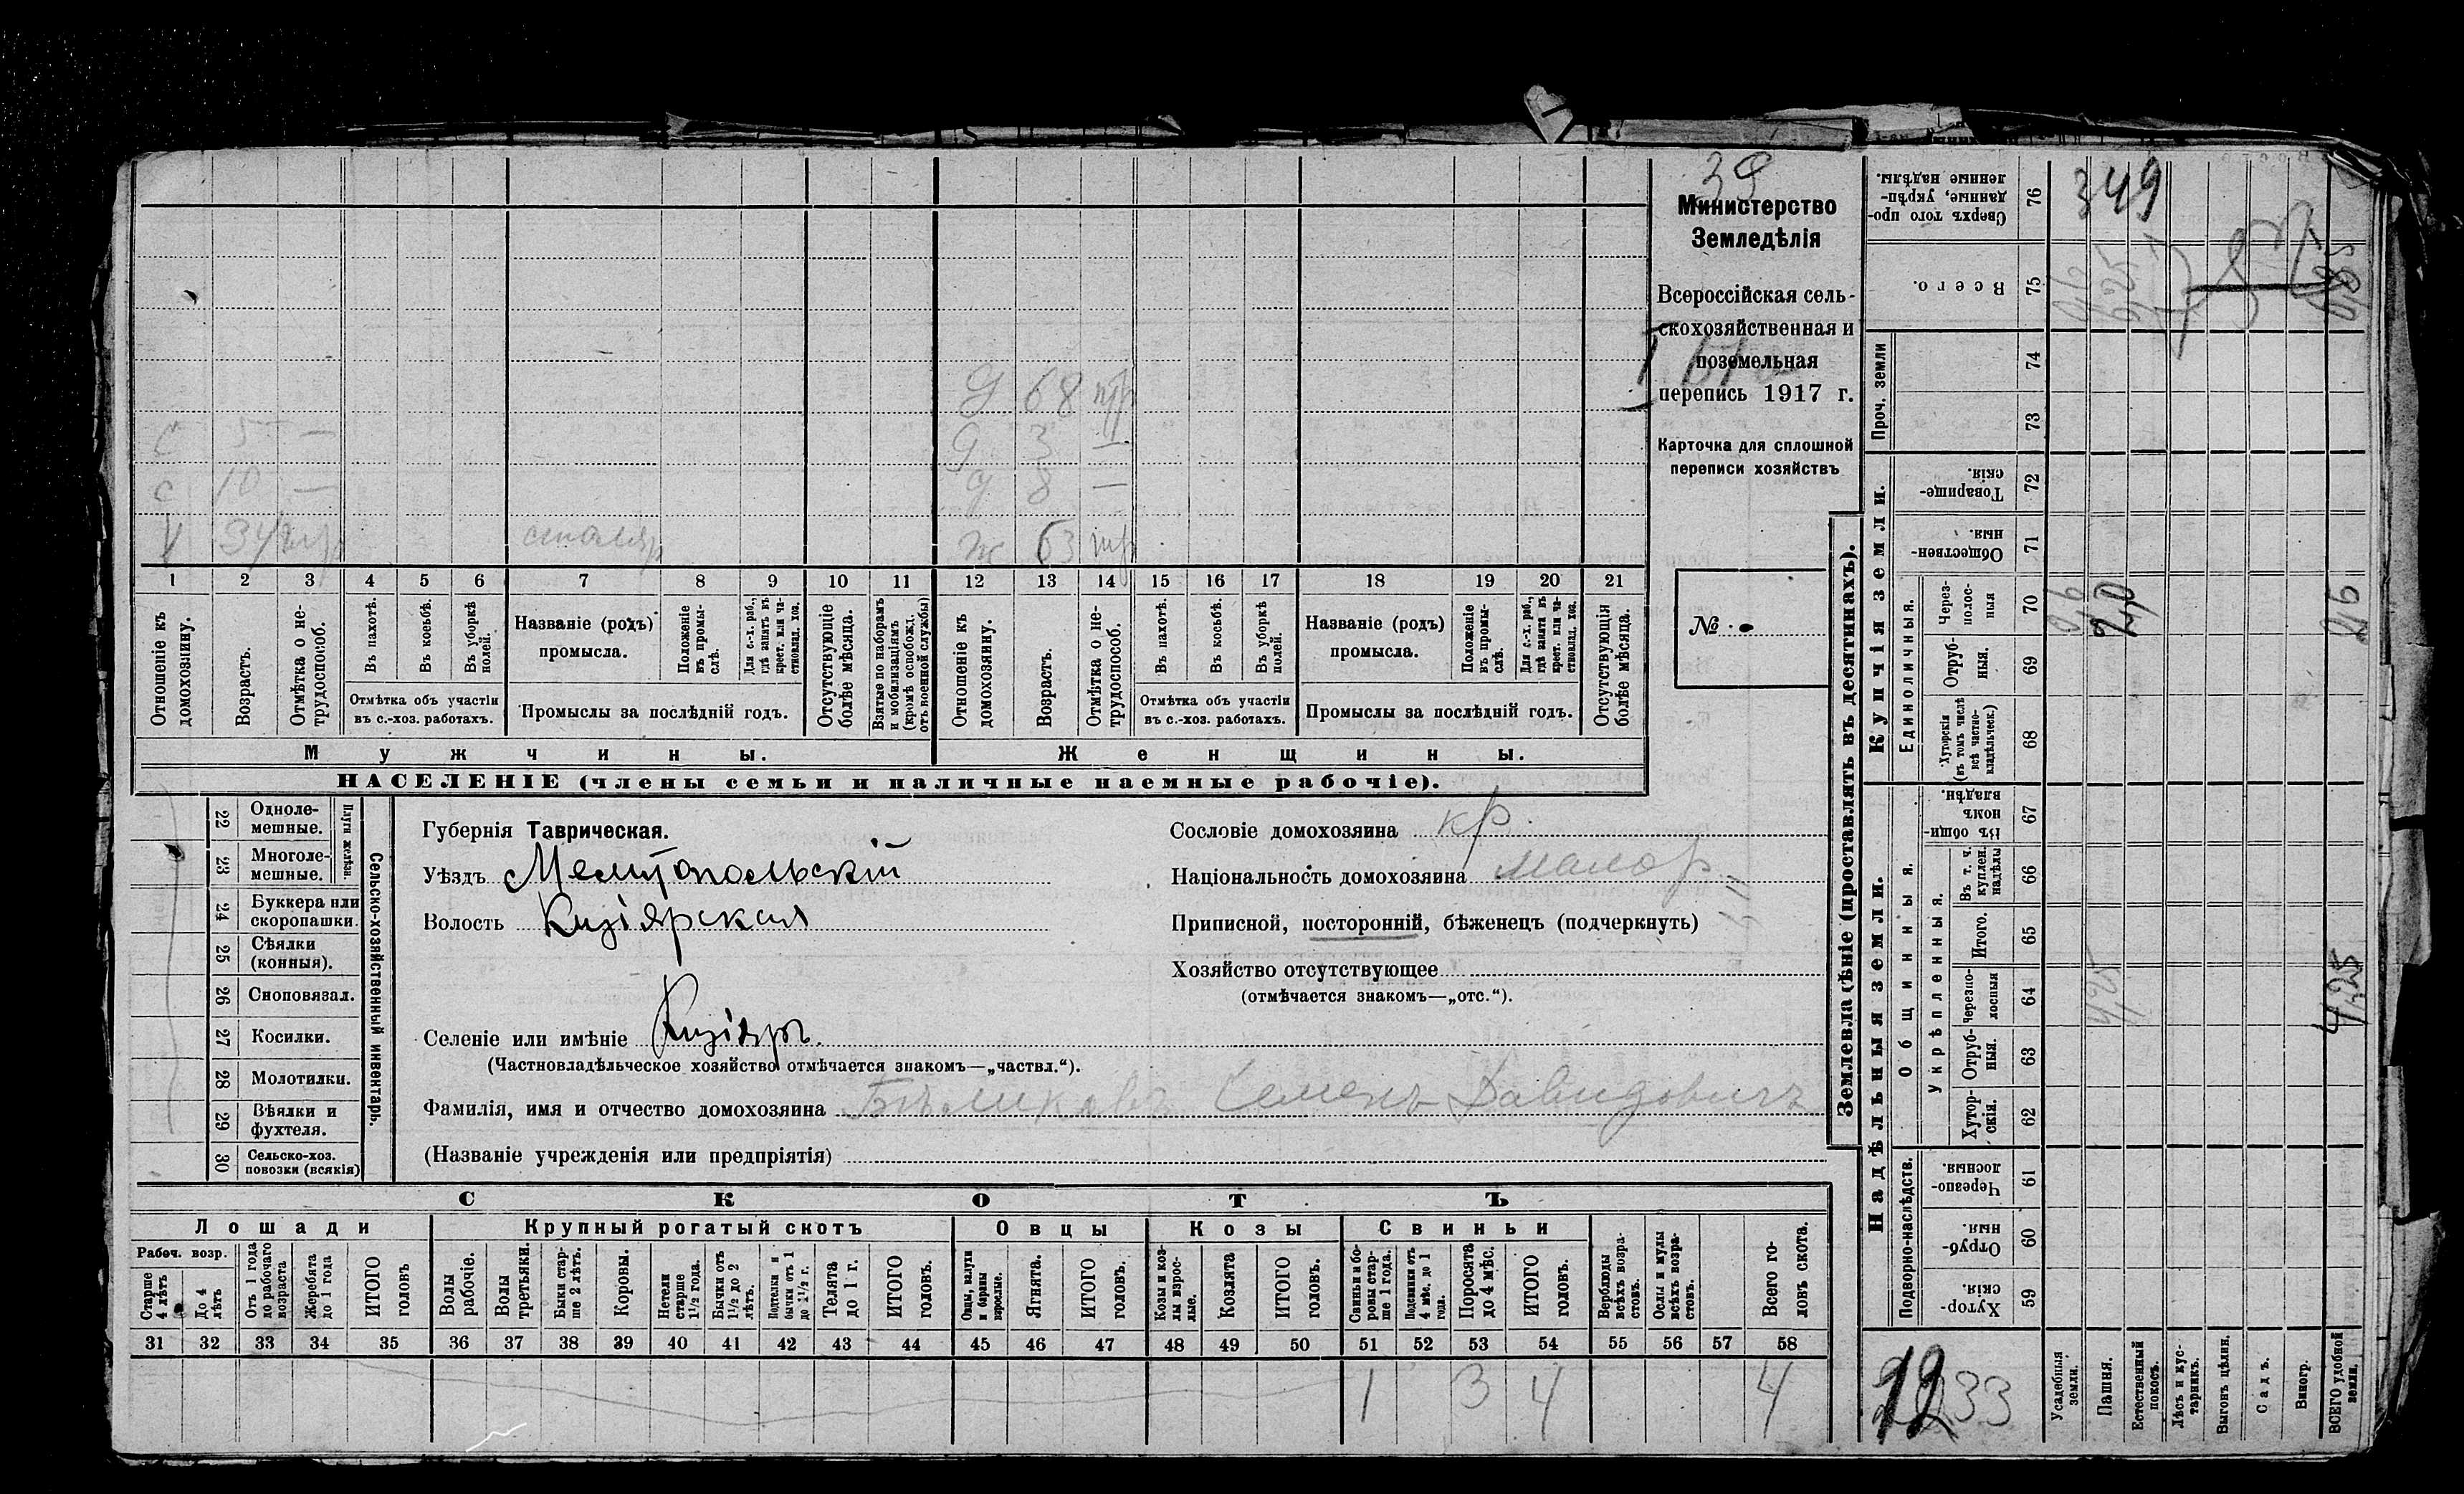 39
Министерство
Земледѣлія
Всероссійская сель-
скохозяйственная и
поземельная
перепись 1917 г.
Карточка для сплошной
переписи хозяйствъ
№
9 68 нтр
С 5 — 9 3 —
с 10 — 9 8 —
34 нтр столяр ж 63 нтр
1 2 3 4 5 6 7 8 9 10 11 12 13 14 15 16 17 18 19 20 21
Отношеніе къ домохозяину.
Возрастъ.
Отмѣтка о не-трудоспособ.
Въ пахотѣ.
Въ косьбѣ.
Въ уборкѣ полей.
Отмѣтка объ участіи
въ с.-хоз. работахъ.
Названіе (родъ)
промысла.
Положеніе въ промы-слѣ.
Для с.-х. раб., гдѣ занятъ въ крест. или ча-стновлад. хоз.
Промыслы за послѣдній годъ.
Отсутствующіе болѣе мѣсяца.
Взятые по наборамъ и мобилизаціямъ (кромѣ освобожд. отъ военной службы)
Отношеніе къ домохозяину.
Возрастъ.
Отмѣтка о не-трудоспособ.
Въ пахотѣ.
Въ косьбѣ.
Въ уборкѣ полей.
Отмѣтка объ участіи
въ с.-хоз. работахъ.
Названіе (родъ)
промысла.
Положеніе въ промы-слѣ.
Для с.-х. раб., гдѣ занята въ крест. или ча-стновлад. хоз.
Промыслы за послѣдній годъ.
Отсутствующія болѣе мѣсяца.
Мужчины. Женщины.
НАСЕЛЕНІЕ (члены семьи и наличные наемные рабочіе).
Сельско-хозяйственный инвентарь.
Плуги желѣзн.
22 Одноле-мешные.
23 Многоле-мешные.
24 Буккера или скоропашки.
25 Сѣялки (конныя).
26 Сноповязал.
27 Косилки.
28 Молотилки.
29 Вѣялки и фухтеля.
30 Сельско-хоз. повозки (всякія)
Губернія Таврическая.
Уѣздъ Мелитопольскій
Волость Кизіярская
Селеніе или имѣніе Кизіяръ.
(Частновладѣльческое хозяйство отмѣчается знакомъ—„частвл.“).
Сословіе домохозяина кр.
Національность домохозяина малор
Приписной, посторонній, бѣженецъ (подчеркнуть)
Хозяйство отсутствующее
(отмѣчается знакомъ—„отс.“).
Фамилія, имя и отчество домохозяина Бѣликовъ Семенъ Давидовичъ
(Названіе учрежденія или предпріятія)
СКОТЪ
Лошади Крупный рогатый скотъ Овцы Козы Свиньи
Рабоч. возр.
Старше 4 лѣтъ
До 4 лѣтъ
Отъ 1 года до рабочаго возраста
Жеребята до 1 года
ИТОГО головъ
Волы рабочіе.
Волы третьяки.
Быки стар-ше 2 лѣтъ.
Коровы.
Нетели старше 1½ года.
Бычки отъ 1½ до 2 лѣтъ.
Подтелки и бычки отъ 1 до 1½ г.
Телята до 1 г.
ИТОГО головъ.
Овцы, валухи и бараны взрослые.
Ягнята.
ИТОГО головъ.
Козы и коз-лы взрос-лые.
Козлята
ИТОГО головъ.
Свиньи и бо-ровы стар-ше 1 года.
Подсвинки отъ 4 мѣс. до 1 года.
Поросята до 4 мѣс.
ИТОГО головъ.
Верблюды всѣхъ возра-стовъ.
Ослы и мулы всѣхъ возра-стовъ.
Всего го-ловъ скота.
31 32 33 34 35 36 37 38 39 40 41 42 43 44 45 46 47 48 49 50 51 52 53 54 55 56 57 58
1 3 4 4
Землевладѣніе (проставлять въ десятинахъ).
Надѣльныя земли. Купчія земли. Проч. земли
Подворно-наслѣдств.
Общинныя.
Укрѣпленныя.
Единоличныя.
59 Хутор-скія.
60 Отруб-ныя.
61 Черезпо-лосныя.
62 Хутор-скія.
63 Отруб-ныя.
64 Черезпо-лосныя
65 Итого.
66 Въ т. ч. куплен. надѣлы
67 Въ общин-номъ владѣн.
68 Хуторскія (въ томъ числѣ всѣ частно-владѣльческ.)
69 Отруб-ныя.
70 Через-полос-ныя
71 Обществен-ныя.
72 Товарище-скія.
73
74
75 Всего.
76 Сверхъ того про-данные, укрѣп-ленные надѣлы.
Усадебныя земли.
Пашня.
Естественный покосъ.
Лѣсъ и кус-тарникъ.
Выгонъ цѣлин.
Садъ.
Виногр.
ВСЕГО удобной земли.
349
425
425